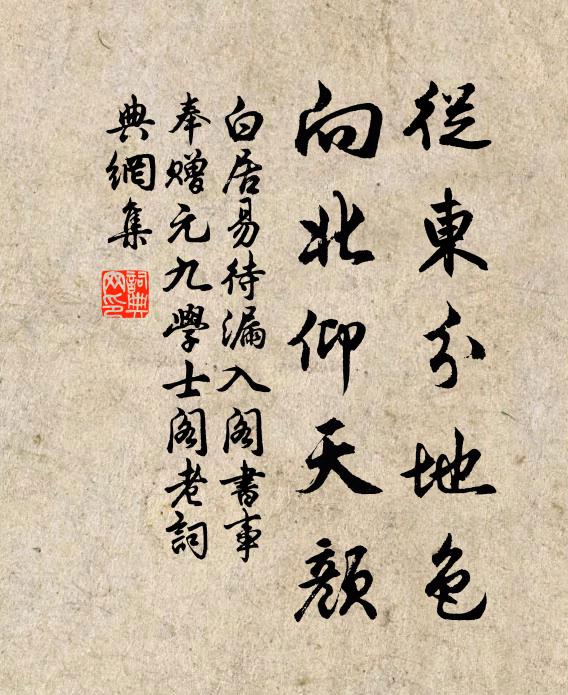 從東分地色
向北仰天顏
白居易待漏入閣書事
奉贈元九學士閣老詞
典網集
詞典網印